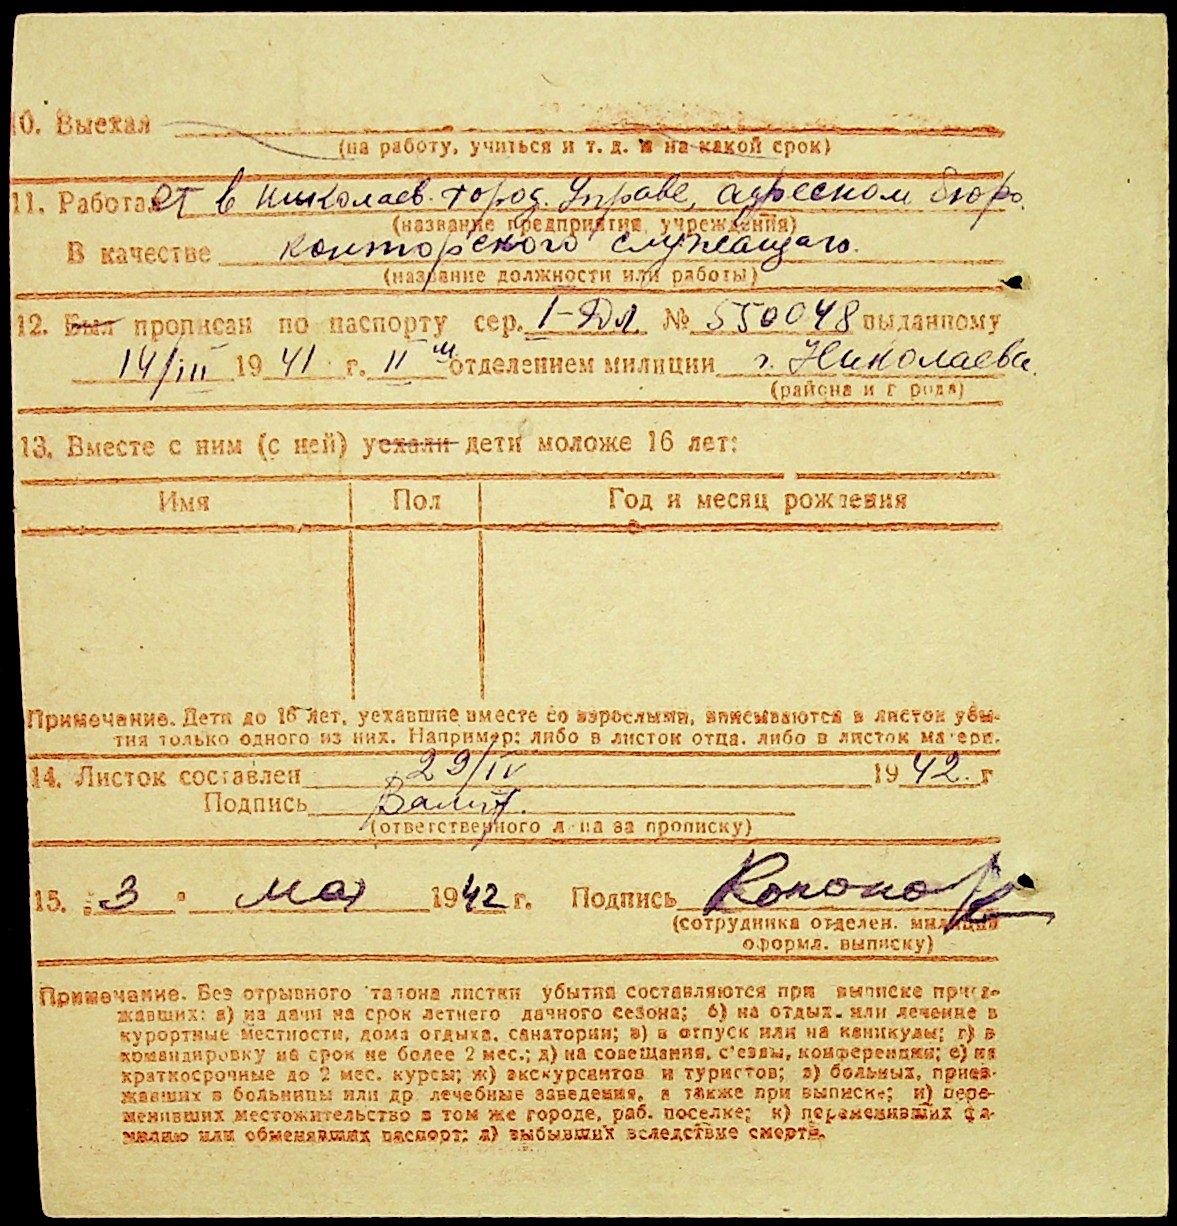 10. Выехал
(на работу, учиться и т. д. и на какой срок)
11. Работает в Николаев. город. Управе, адресном бюро.
(название предприятия, учреждения)
В качестве конторского служащаго.
(название должности или работы)
12. Был прописан по паспорту сер. I-ДЛ № 550048 выданному
14/III 1941 г. II м отделением милиции г. Николаева.
(района и города)
13. Вместе с ним (с ней) уехали дети моложе 16 лет:
Имя Пол Год и месяц рождения
Примечание. Дети до 16 лет, уехавшие вместе со взрослыми, вписываются в листок убы-
тия только одного из них. Например: либо в листок отца, либо в листок матери.
14. Листок составлен 29/IV 1942. г
Подпись
(ответственного лица за прописку)
15. „3" мая 1942 г. Подпись
(сотрудника отделен. милиции
оформл. выписку)
Примечание. Без отрывного талона листки убытия составляются при выписке приез-
жавших: а) из дачи на срок летнего дачного сезона; б) на отдых. или лечение в
курортные местности, дома отдыха, санатории; в) в отпуск или на каникулы; г) в
командировку на срок не более 2 мес.; д) на совещания, с'езды, конференции; е) на
краткосрочные до 2 мес. курсы; ж) экскурсантов и туристов; з) больных, приез-
жавших в больницы или др. лечебные заведения, а также при выписке; и) пере-
менивших местожительство в том же городе, раб. поселке; к) переменивших фа-
милию или обменявших паспорт; л) выбывших вследствие смерти.